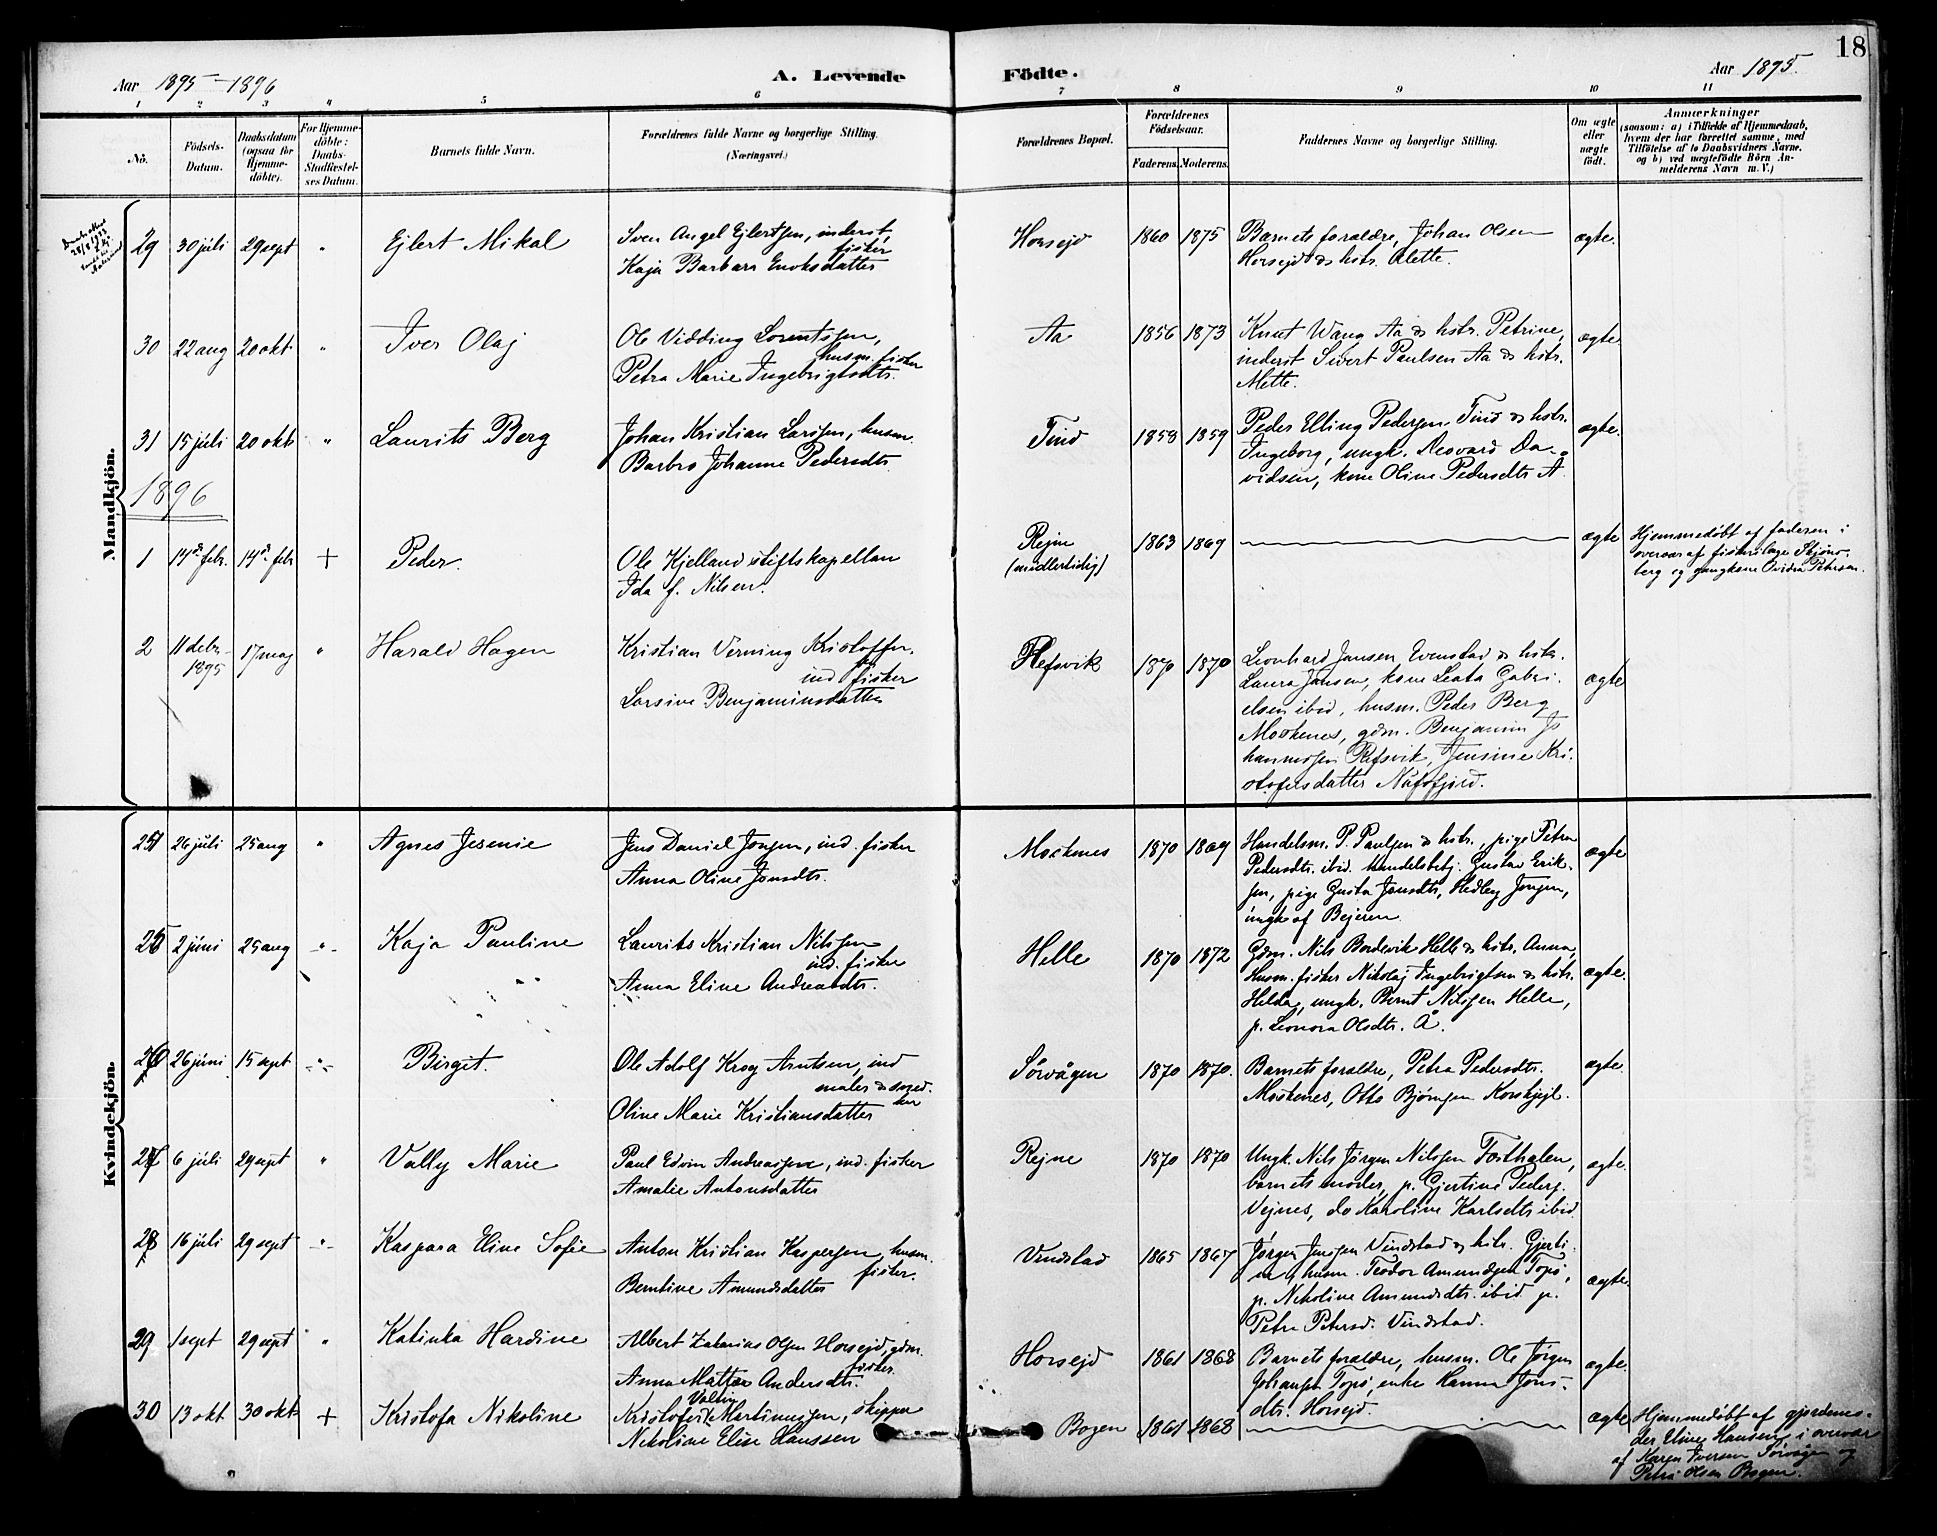 18
Aar 1895-1896
A. Levende
Födte.
Aar 1895.
1 2 3 4 5 6 7 8 9 10 11
No.
Födsels-Datum.
Daabsdatum (ogsaa for Hjemme-döbte).
For Hjemme-döbte: Daabs-Stadfæstel-ses Datum.
Barnets fulde Navn.
Forældrenes fulde Navne og borgerlige Stilling.
(Næringsvei.)
Forældrenes Bopæl.
Forældrenes Födselsaar.
Faderens. Moderens.
Faddernes Navne og borgerlige Stilling.
Om ægte eller uægte födt.
Anmærkninger
(saasom: a) i Tilfælde af Hjemmedaab,
hvem der har forrettet samme, med
Tilföielse af to Daabsvidners Navne,
og b) ved uægtefödte Börn An-
melderens Navn m. V.)
Mandkjön.
29 30 juli 29 sept " Ejlert Mikal
Sven Angel Ejlertsen, inderst,
fisker
Kaja Barbara Enoksdatter
Horsejd 1860 1875
Barnets forældre, Johan Olsen
Horsejd & hstr. Alette.
ægte.
30 22 aug 20 okt " Iver Olaj
Ole Vidding Lorentssen,
husm. fisker
Petra Marie Ingebrigtsdtr.
Aa 1856 1873
Knut Wang Aa & hstr. Petrine,
inderst Sivert Paulsen Aa & hstr.
Mette.
ægte.
31 15 juli 20 okt " Laurits Berg
Johan Kristian Larssen, husm.
Barbro Johanne Pedersdtr.
Tind 1853 1859
Peder Elling Pedersen Tind & hstr.
Ingeborg, ungk. Da-
vidsen, kone Oline Pedersdtr Å
ægte.
1896
1 14de febr. 14de febr + Peder.
Ole Kjelland stiftskapellan
Ida f. Nilsen.
Rejne
(midlertidig)
1863 1869
ægte
Hjemmedøbt af faderen i
overvær af Skjøns-
berg og gangkone Petersen.
2 11 debr. 1895 17 maj " Harald Hagen
Kristian Verning Kristoffer-
sen
ind fisker
Larsine Benjaminsdatter
Refsvik 1870 1870
Leonhard Jansen Evenstad & hstr.
Laura Jansen, kone Leata Gabri-
elsen ibid, husm. Peder Berg
Moskenes, gdm. Benjamin Jo
hannessen Refsvik, Jensine Kri-
stofersdatter Nufsfjord.
ægte
Kvindekjön.
24 26 juli 25 aug " Agnes Jesenie
Jens Daniel Jonsen, ind. fisker
Anna Oline Jonsdtr.
Moskenes 1870 1869
Handelsm. P. Paulsen & hstr., pige Petra
Pedersdtr. ibid. handelsbetj. Gustav Erik-
sen, pige Gusta Jonsdtr, Hedley Jonsen,
ungk af Bejeren
ægte
25 2 juni 25 aug " Kaja Pauline
Laurits Kristian Nilssen
ind. fisker
Anna Eline Andreasdtr.
Helle 1870 1872
Gdm. Nils Bordevik Helle & hstr. Anna,
Husm. fisker Nikolaj Ingebrigtsen & hstr.
Helda, ungk. Bernt Nilssen Helle,
p. Leonora Olsdtr. Å.
ægte.
26 26 juni 15 sept " Birgit.
Ole Adolf Krog Arntsen, ind
maler & sned-
ker
Oline Marie Kristiansdatter
Sørvågen 1870 1870.
Barnets forældre, Petra Pedersdtr.
Moskenes, Otto Bjørnsen
ægte.
27 6 juli 29 sept " Vally Marie
Paul Edvin Andreassen, ind. fisker
Amalie Antonsdatter
Rejne 1870 1870
Ungk. Nils Jørgen Nilssen Forsthalen,
barnets moder, p. Gjertine Peders.
Vejnes, do Karoline Karlsdtr ibid
ægte.
28 16 juli 29 sept " Kaspara Eline Sofie
Anton Kristian Kaspersen, husm.
fisker.
Berntine Amundsdatter
Vindstad 1865 1867
Jørgen Jenssen Vindstad & hstr. Gjerti-
ne, husm. Teodor Amundsen Topø,
p. Nikoline Amundsdtr. ibid. p.
Petra Petersd. Vindstad.
ægte.
29 1 sept 29 sept " Katinka Hardine
Albert Zakarias Olsen Horsejd, gdm.
fisker.
Anna Matta Andersdtr.
Horsejd 1861 1868
Barnets forældre, husm. Ole Jørgen
Johansen Topø, enke Hanna Jons-
dtr. Horsejd.
ægte.
30 13 okt 30 okt + Kristofa Nikoline
Valdin
Kristofer Martinussen, skipper
Nikoline Elise Hanssen
Bogen 1861 1868
ægte
Hjemmedøbt af gjordemo-
der Eline Hansen, i overvær
af Maren Iversen Sørvågen og
Petra Olsen Bogen.